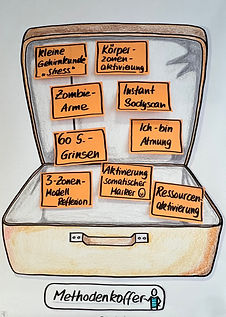 Kleine
Gehirnkunde
„Stress"
Körper-
zonen-
aktivierung
Zombie-
Arme
Instant
Bodyscan
60 S.-
Grinsen
Ich-bin
Atmung
3-Zonen-
Modell
Reflexion
Aktivierung
somatischer
Marker
Ressourcen-
aktivierung
Methodenkoffer